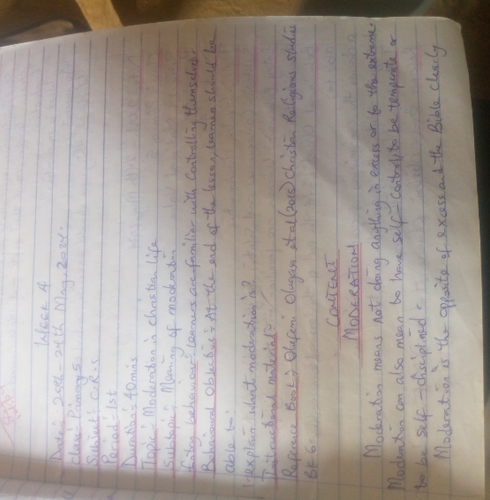 Week 4
Date: 20th - 24th May, 2024.
Class: Primary 5
Subject: C.R.S
Period: 1st
Duration: 40mins
Topic: Moderation in christian life
Subtopic: Meaning of moderation
Entry behaviour: learners are familiar with controlling themselves.
Behavioural Objective: At the end of the lesson, learners should be
able to:
1. explain what moderation is?
Instructional material:
Reference Book: Olufemi et al (2016) Christian Religious Studies
BK 6.
CONTENT
MODERATION
Moderation means not doing anything in excess or to the extreme.
Moderation can also mean to have self-control, to be temperate or
to be self-disciplined.
Moderation is the opposite of excess and the Bible clearly